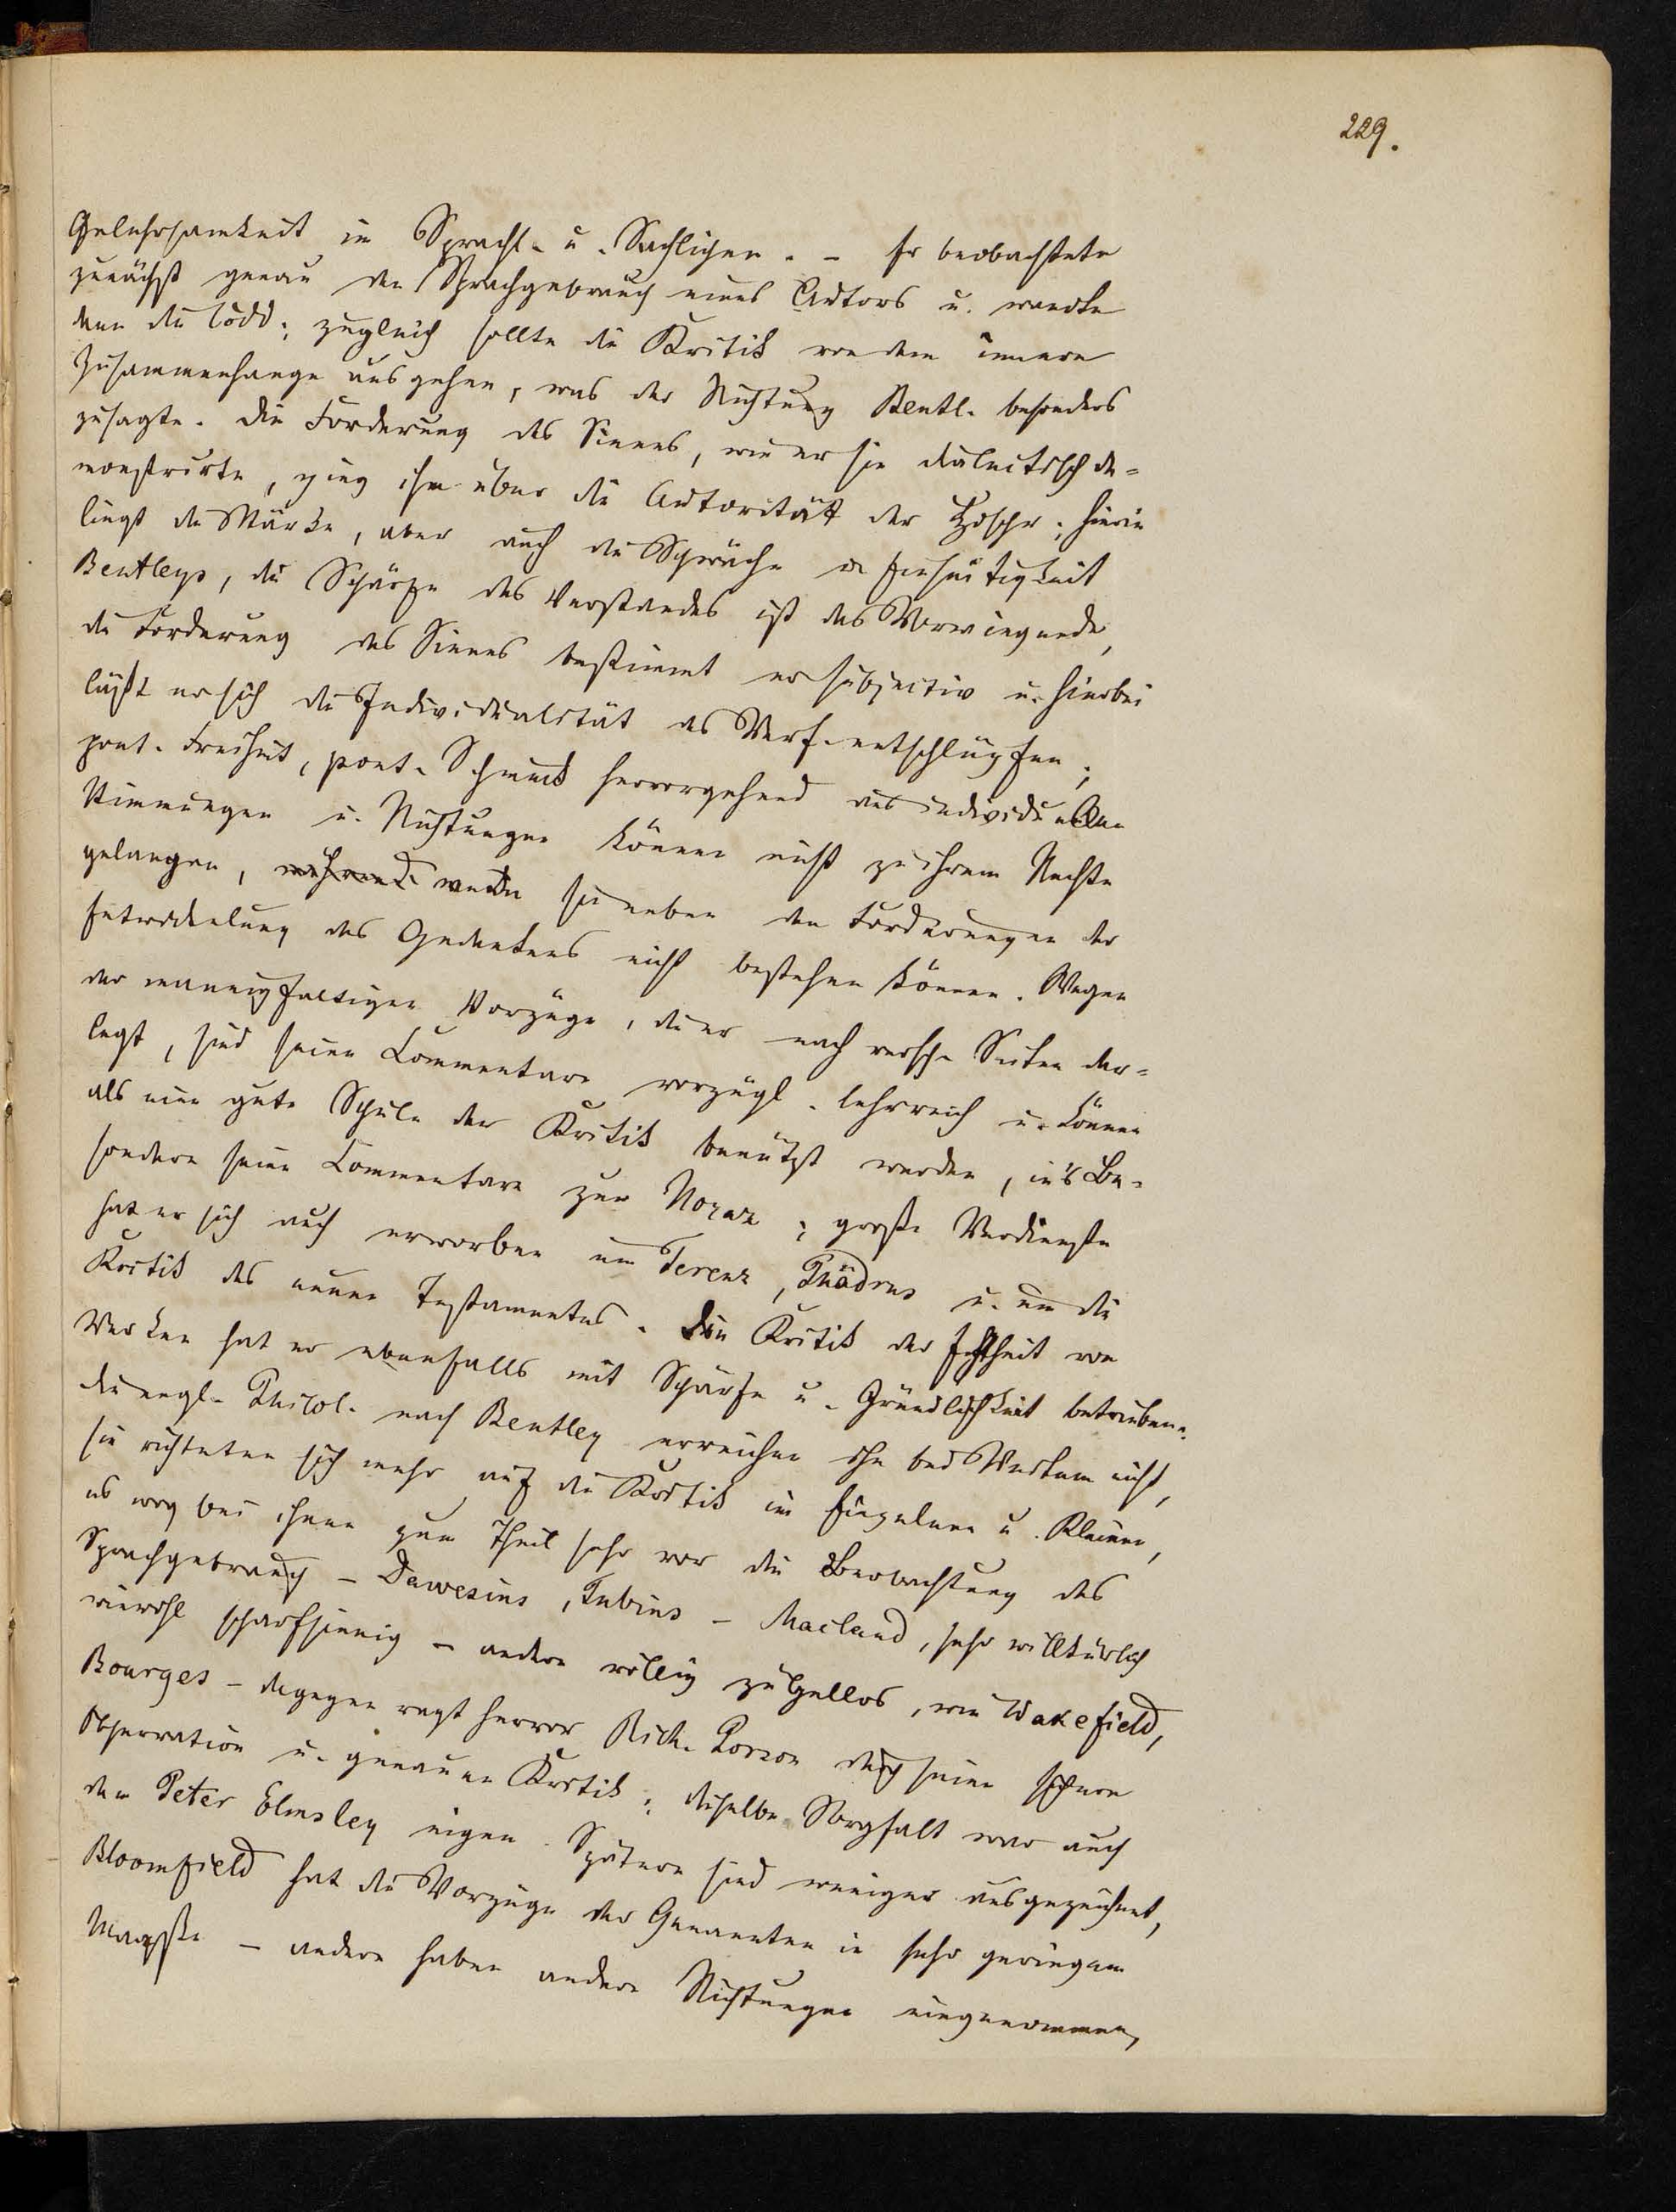 229.
Gelehrsamkeit im Sprachl. u. Sachlichen. – Er beobachtete
zunächst genau den Sprachgebrauch eines Autors u. wandte
dann die Codd.; zugleich sollte die Kritik von dem innern
Zusammenhange ausgehen, was der Richtung Bentl. besonders
zusagte. Die Forderung des Sinnes, wie er sie dialectisch de-
monstrirte, ging ihm über die Autorität der Hdschr.; hierin
liegt die Stärke, aber auch die Schwäche u. Einseitigkeit
Bentleys, die Schärfe des Verstandes ist das Vorwiegende,
die Forderung des Sinnes bestimmt er subjectiv u. hierbei
läßt er sich die Individualität des Verf. entschlüpfen;
poet. Freiheit, poet. Schmuck hervorgehend aus individuellen
Stimmungen u. Richtungen können nicht zu ihrem Rechte
gelangen, während wenn sie neben den Forderungen der
Entwickelung des Gedankens nicht bestehen können. Wegen
der mannigfaltigen Vorzüge, die er nach versch. Seiten dar-
legt, sind seine Commentare vorzügl. lehrreich u. können
als eine gute Schule der Kritik benützt werden, ins Be-
sondere seine Commentare zum Horaz; große Verdienste
hat er sich auch erworben um Terenz, Phädrus u. um die
Kritik des neuen Testamentes. Die Kritik der Echtheit von
Werken hat er ebenfalls mit Schärfe u. Gründlichkeit betrieben.
Die engl. Philol. nach Bentley erreichen ihn bei Weitem nicht,
sie richteten sich mehr auf die Kritik im Einzelnen u. Kleinen,
es wog bei ihnen zum Theil sehr vor die Beobachtung des
Sprachgebrauch – Dawesius, – Macland, sehr willkürlich
wiewohl scharfsinnig – andere völlig zügellos, wie Wakefield,
Bourges – dagegen ragt hervor Rich. Porson durch seine sichere
Observation u. genauen Kritik; dieselbe Sorgfalt war auch
dem Peter Elmsley eigen. Spätere sind weniger ausgezeichnet,
Bloomfield hat die Vorzüge der Genannten in sehr geringem
Maaßse – andere haben andere Richtungen eingenommen,